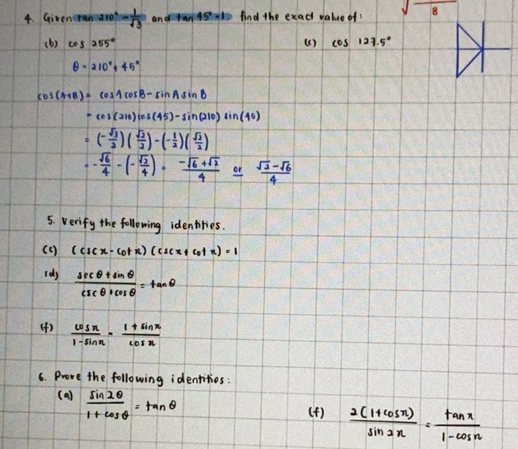 √ 8
4. Given tan 210° = 1/√3 and tan 45° = 1, find the exact value of:
(b) cos 255° (c) cos 127.5°
θ = 210° + 45°
cos(A+B) = cosA cosB - sinA sinB
= cos(210)cos(45) - sin(210) sin(45)
= (-√3/2)(√2/2) - (-1/2)(√2/2)
= -√6/4 - (-√2/4) = -√6+√2/4 or √2-√6/4
5. Verify the following identities.
(c) (csc x - cot x)(csc x + cot x) = 1
(d) sec θ + sin θ / csc θ + cos θ = tan θ
(f) cos x / 1 - sin x = 1 + sin x / cos x
6. Prove the following identities:
(a) sin 2θ / 1 + cos θ = tan θ (f) 2(1+cos x) / sin 2x = tan x / 1 - cos x